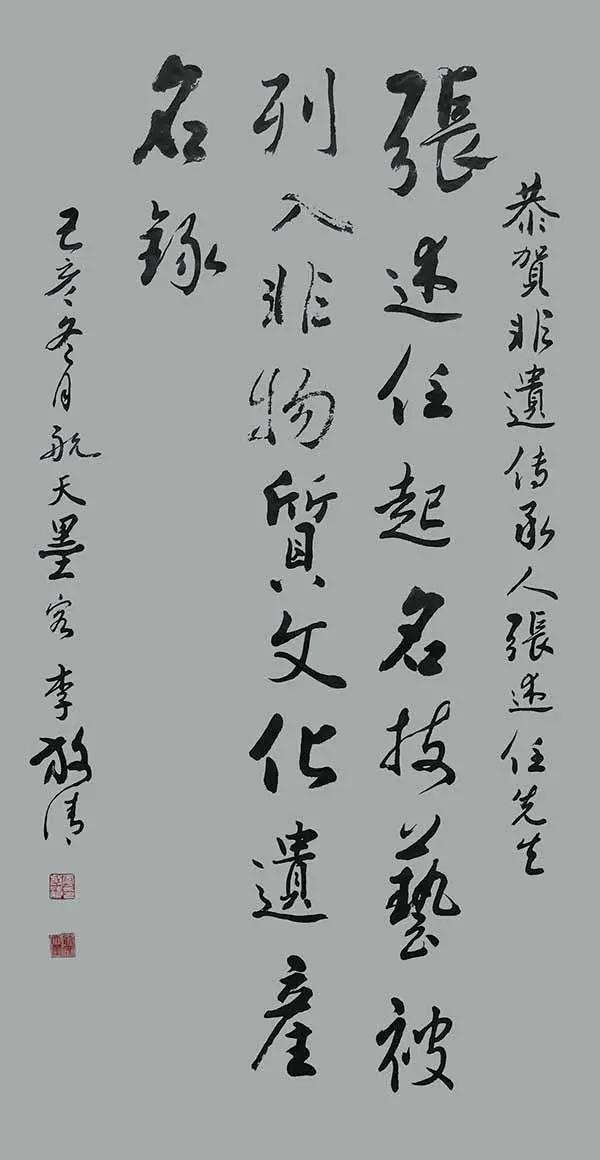 恭賀非遺传承人張述任先生
張述任起名技藝被
列入非物質文化遺産
名錄
己亥冬月航天墨客李敬清